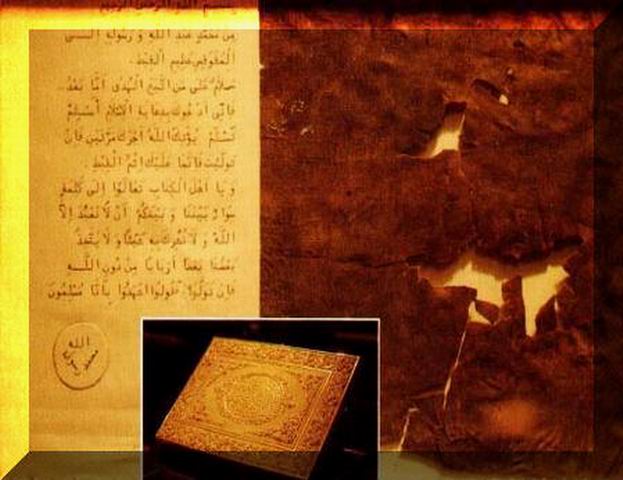 بسم الله الرحمن الرحيم
من محمد عبد الله و رسوله الى
المقوقس عظيم القبط.
سلام على من اتبع الهدى أما بعد
فانى أدعوك بدعاية الاسلام أسلم
تسلم يؤتك الله أجرك مرتين فان
توليت فانما عليك إثم القبط.
و يا أهل الكتاب تعالوا إلى كلمة
سواء بيننا و بينكم أن لا نعبد إلا
الله و لا نشرك به شيئا و لا يتخذ
بعضنا بعضا أربابا من دون اللـه
فإن تولوا فقولوا اشهدوا بأنا مسلمون
الله
رسول